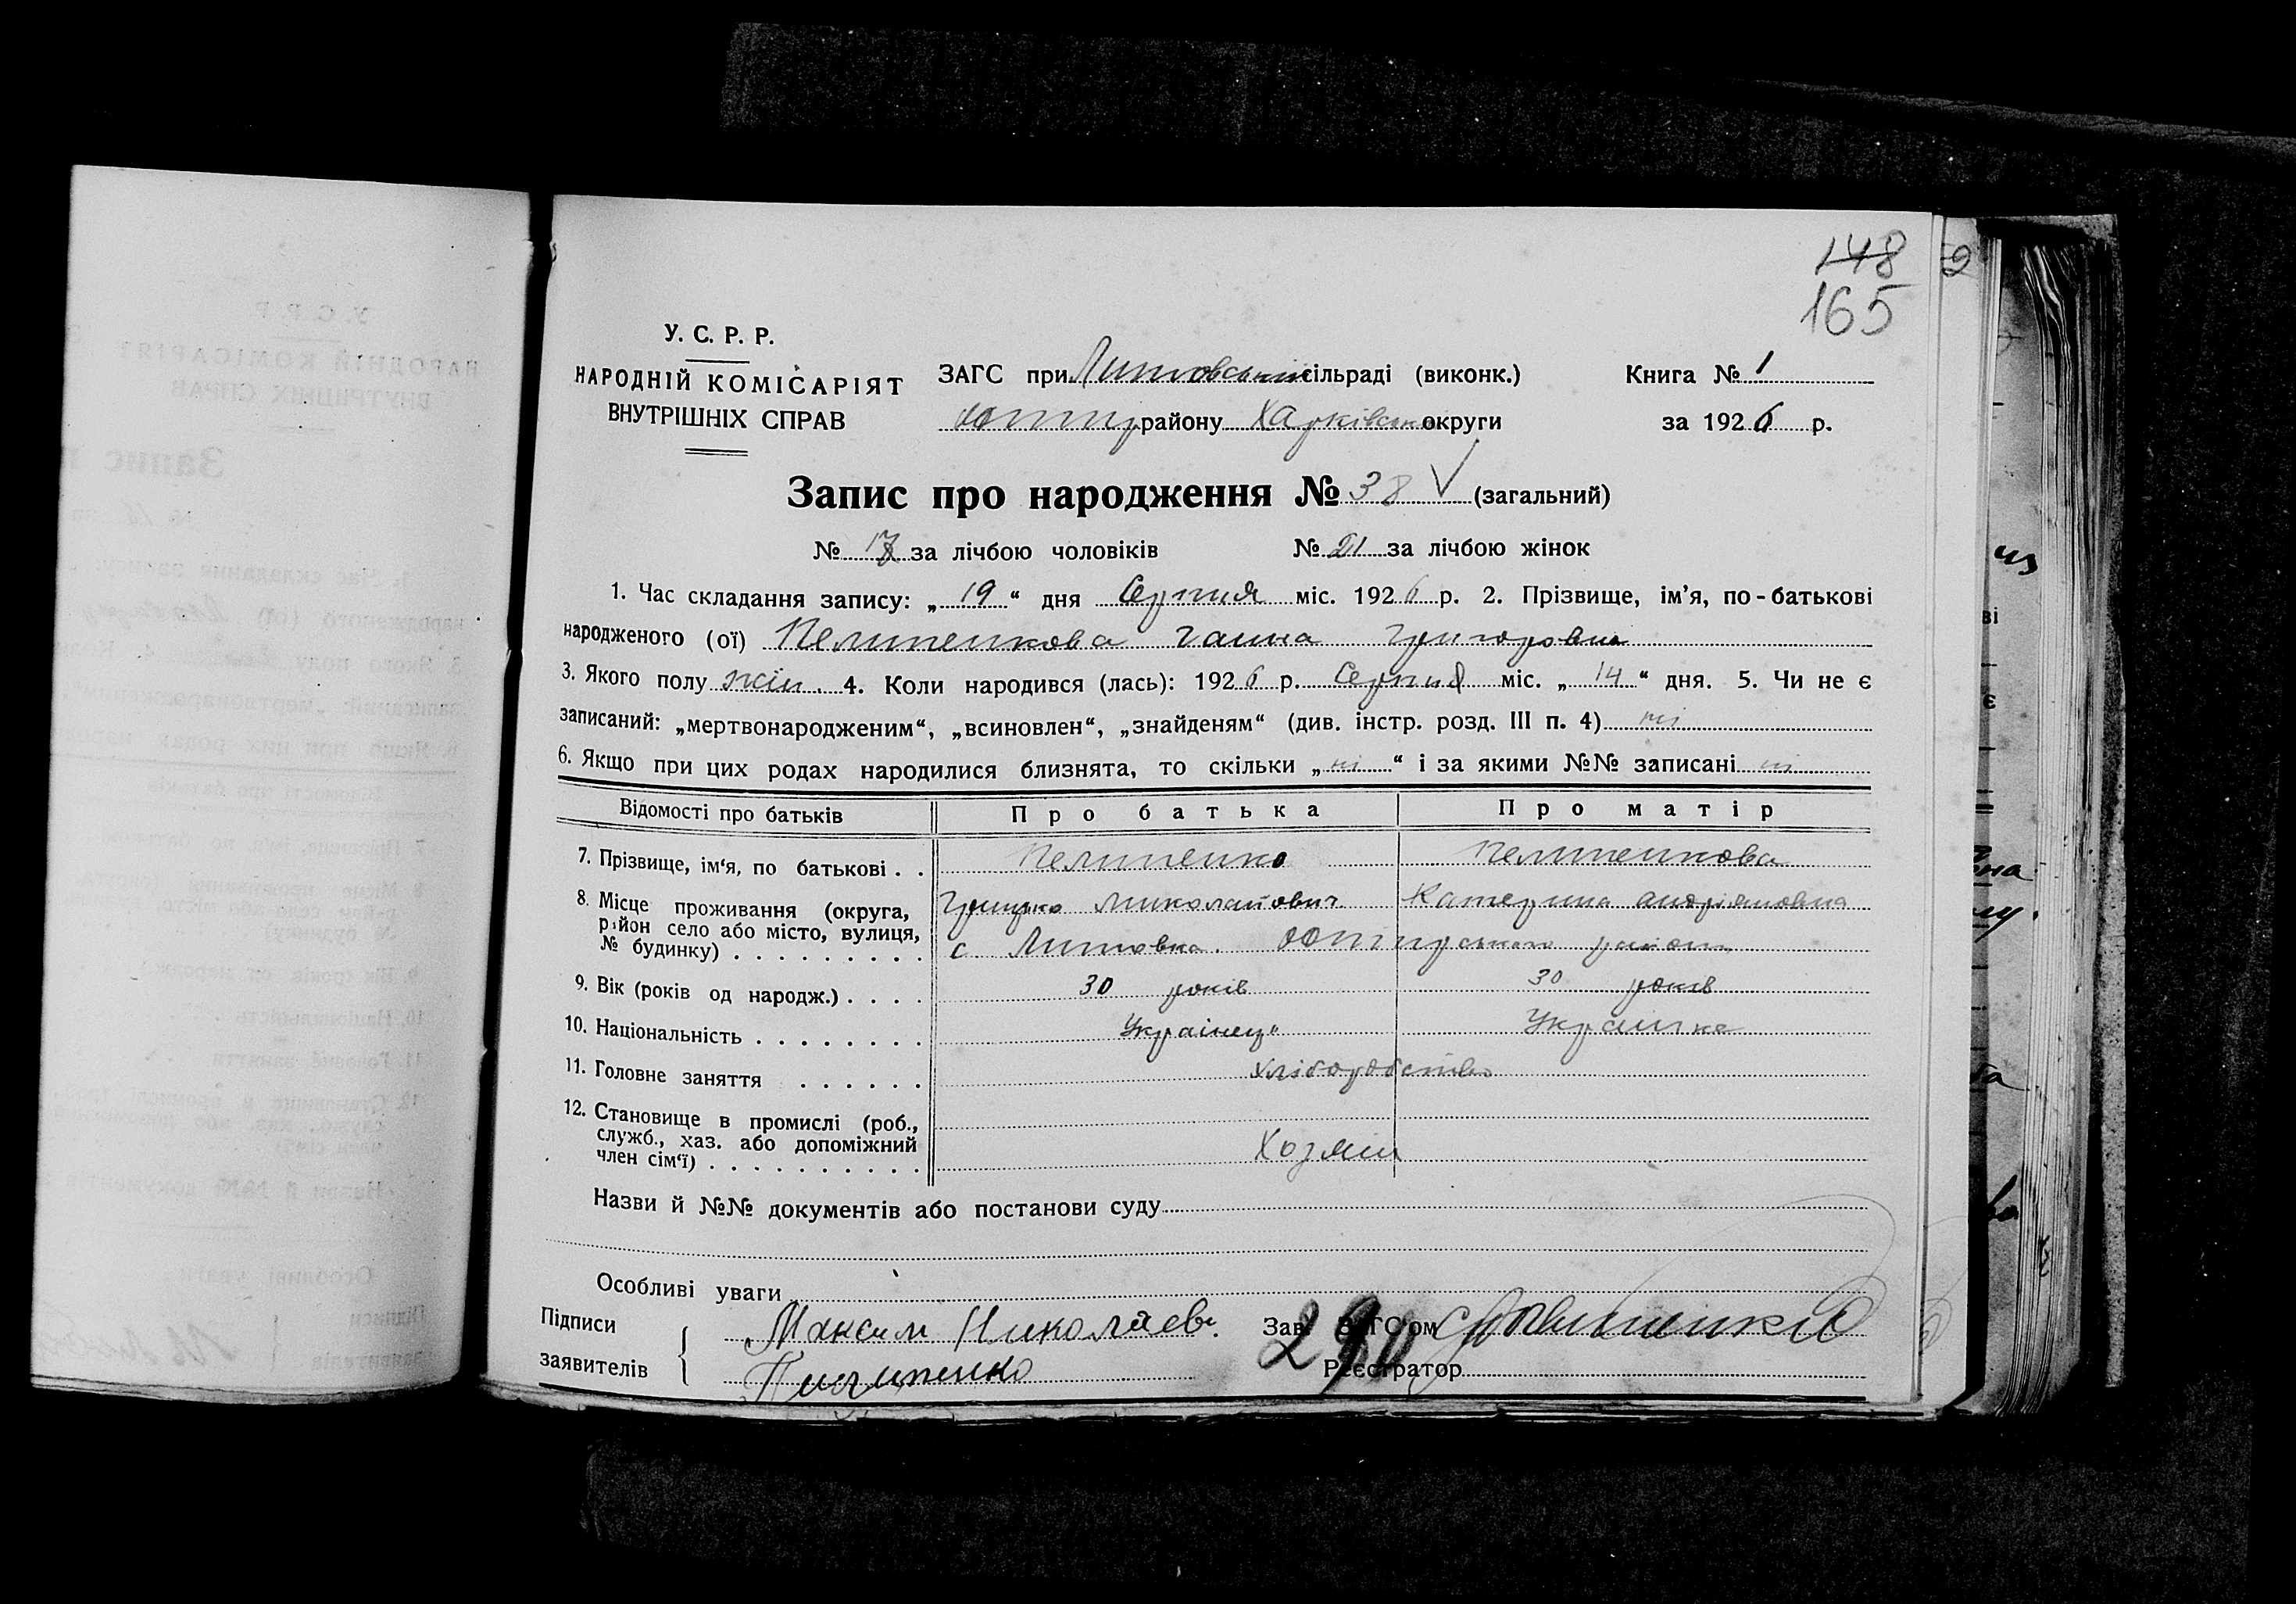 148
165
У. С. Р. Р.
НАРОДНІЙ КОМІСАРІЯТ
ВНУТРІШНІХ СПРАВ
ЗАГС при Литовській сільраді (виконк.)
району Харківської округи
Книга № 1
за 1926 р.
Запис про народження № 38 (загальний)
№ 17 за лічбою чоловіків № 21 за лічбою жінок
1. Час складання запису: „ 19 “ дня Серпня міс. 1926 р. 2. Прізвище, ім’я, по-батькові
народженого (ої) Пелипенкова Ганна Григоровна
3. Якого полу жін. 4. Коли народився (лась): 1926 р. Серпня міс. „ 14 “ дня. 5. Чи не є
записаний: „мертвонародженим“, „всиновлен“, „знайденям“ (див. інстр. розд. III п. 4) ні
6. Якщо при цих родах народилися близнята, то скільки „ ні “ і за якими №№ записані ні
Відомості про батьків Про батька Про матір
7. Прізвище, ім‘я, по батькові . . Пелипенко Пелипенкова
8. Місце проживання (округа, Грицько Миколайович Катерина Андріяновна
район село або місто, вулиця,
№ будинку) . . . . . . . . . с Литовка. району
9. Вік (років од народж.) . . . . 30 років 30 років
10. Національність . . . . . . . . Українець Українка
11. Головне заняття . . . . . . Хліборобство
12. Становище в промислі (роб.,
служб., хаз. або допоміжний
член сім‘ї) . . . . . . . . . . Хозяин
Назви й №№ документів або постанови суду
Особливі уваги
Підписи
заявителів
Максим Николаев.
Зав. ЗАГС‘ом
290
Реєстратор